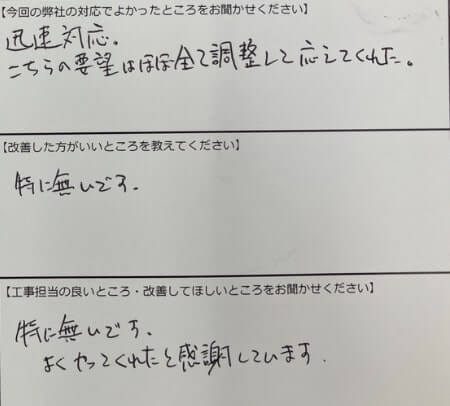 【今回の弊社の対応でよかったところをお聞かせください】
迅速対応。
こちらの要望はほぼ全て調整して応えてくれた。
【改善した方がいいところを教えてください】
特に無いです。
【工事担当の良いところ・改善してほしいところをお聞かせください】
特に無いです。
よくやってくれたと感謝しています.